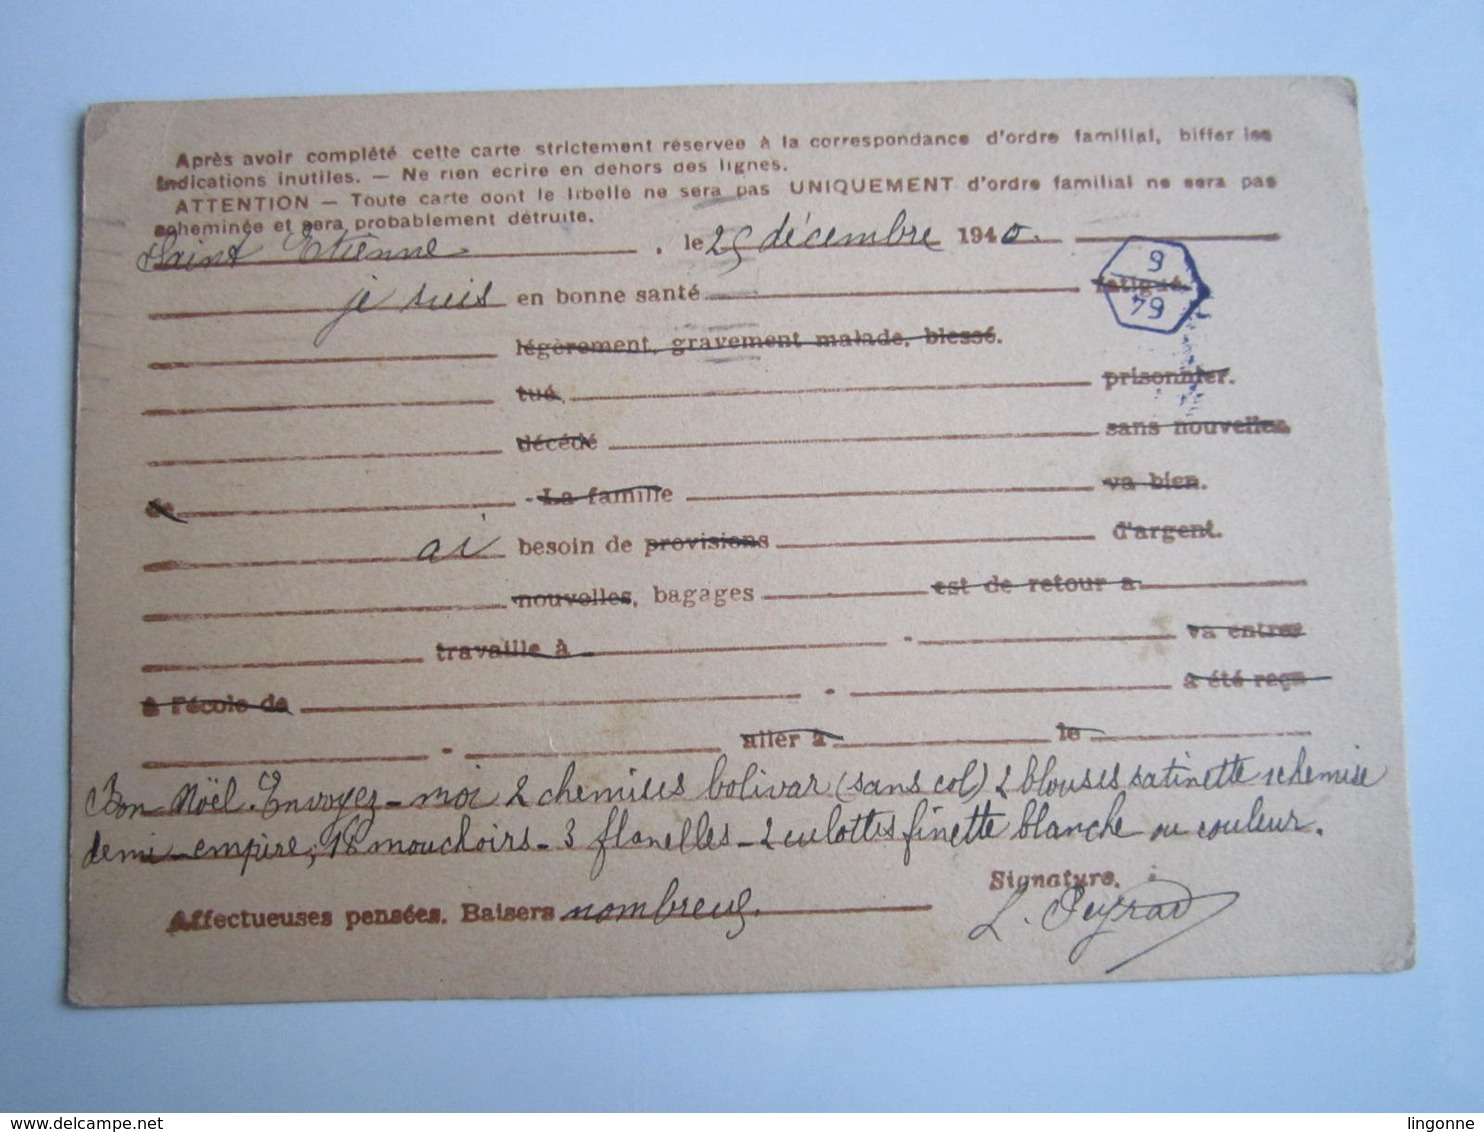 Après avoir complété cette carte strictement réservée à la correspondance d'ordre familial, biffer les
indications inutiles. — Ne rien écrire en dehors des lignes.
ATTENTION — Toute carte dont le libellé ne sera pas UNIQUEMENT d'ordre familial ne sera pas
acheminée et sera probablement détruite.
Saint Etienne , le 25 décembre 1940.
je suis en bonne santé fatigué.
9
79
légèrement, gravement malade, blessé.
tué, prisonnier.
décédé sans nouvelles
de - La famille va bien.
ai besoin de provisions d'argent.
nouvelles, bagages est de retour a
travaille à - va entrer
à l'école de - a été reçu
- aller à le
Bon Noël. Envoyez-moi 2 chemises bolivar (sans col) 2 blouses satinette 1 chemise
demi-empire, 18 mouchoirs - 3 flanelles - 2 culottes finette blanche ou couleur.
Signature.
Affectueuses pensées. Baisers nombreux.
L. Peyrard
delcampe.net
lingonne